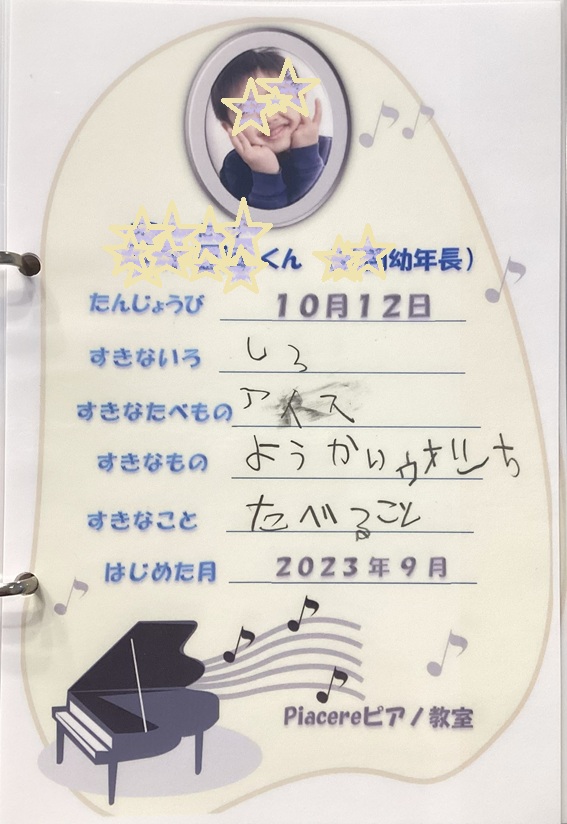 くん (幼年長)
たんじょうび 10月12日
すきないろ しろ
すきなたべもの アイス
すきなもの ようかいウオッち
すきなこと たべること
はじめた月 2023年9月
Piacereピアノ教室